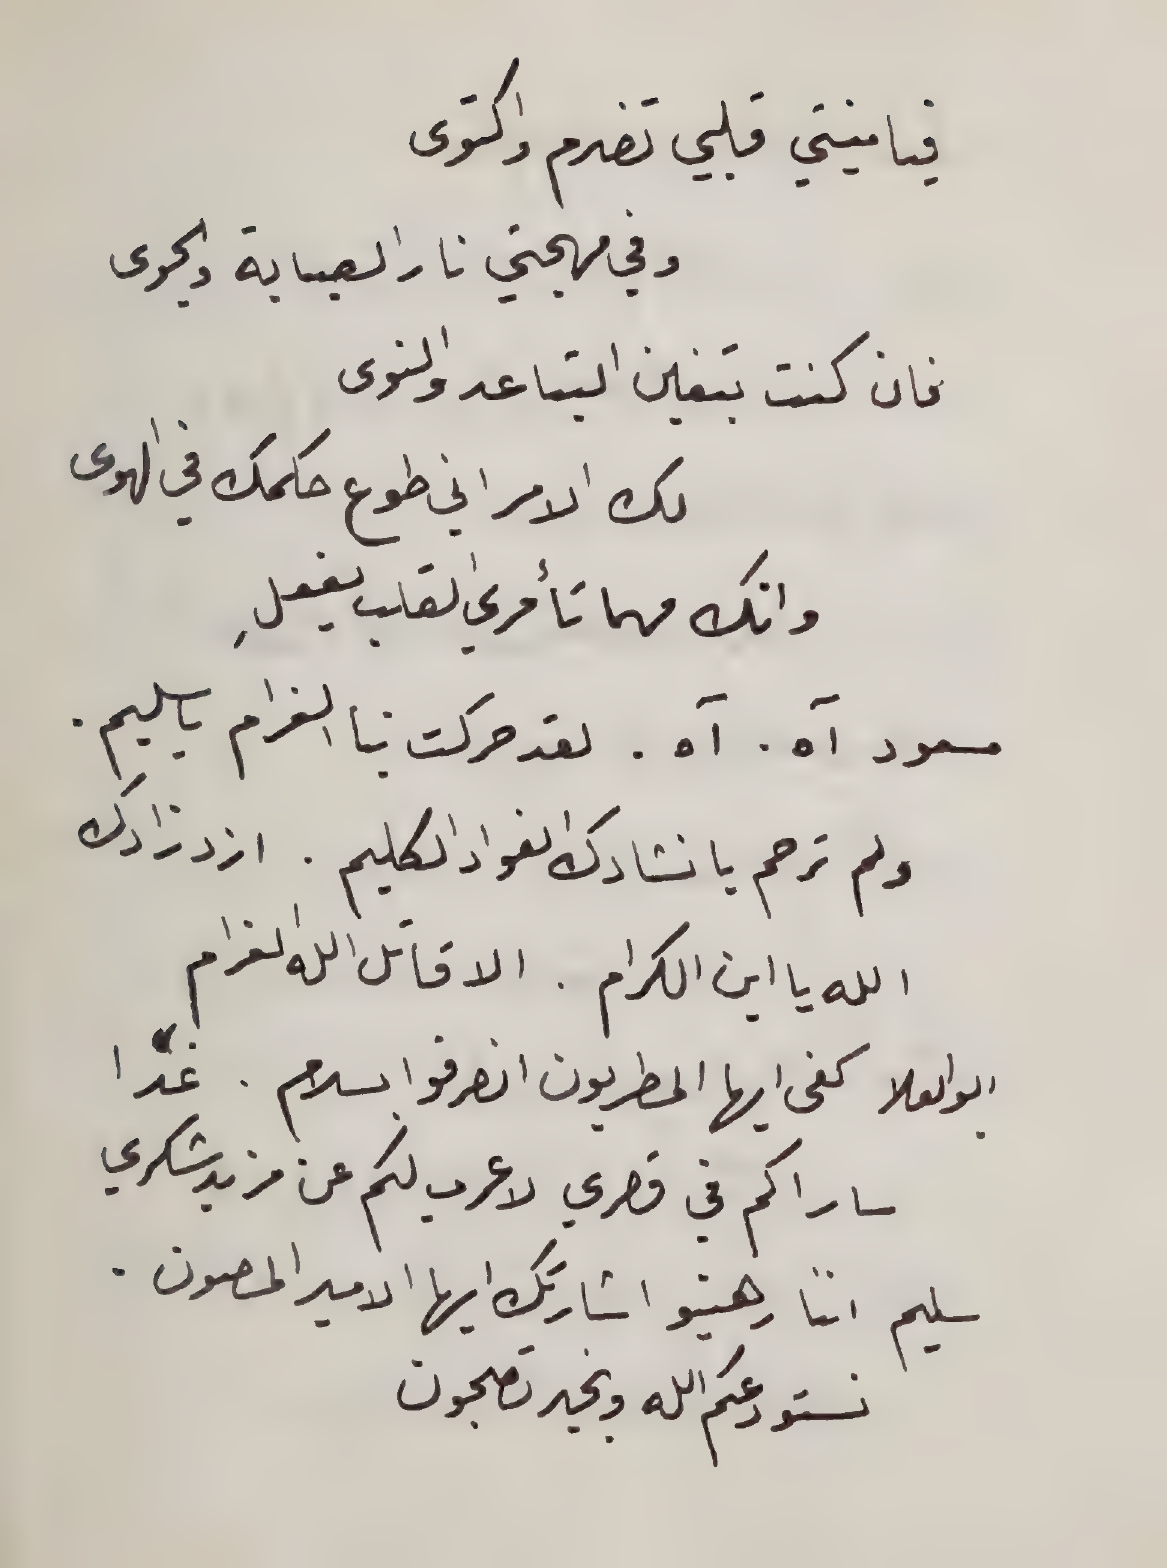 فيا منيتي قلبي تضرم واكتوى
وفي مهجتي نار الصبابة والجوى
فان كنت تبغين التباعد والنوى
لك الامر اني طوع حكمك في الهوى
وانك مهما تأمري القلب يفعلِ
مسعود آه . آه . لقد حركت نبا الغرام يا سليم .
ولم ترحم بانشادك الفواد الكليم . ازد زادك
الله يا ابن الكرام . الا قاتل الله الغرام
ابو العلا كفى ايها المطربون انصرفوا بسلام . غدًا
ساراكم في قصري لاعرب لكم عن مزيد شكري
سليم اننا رهينو اشارتك ايها الامير المصون .
نستودعكم الله وبخير تصبحون